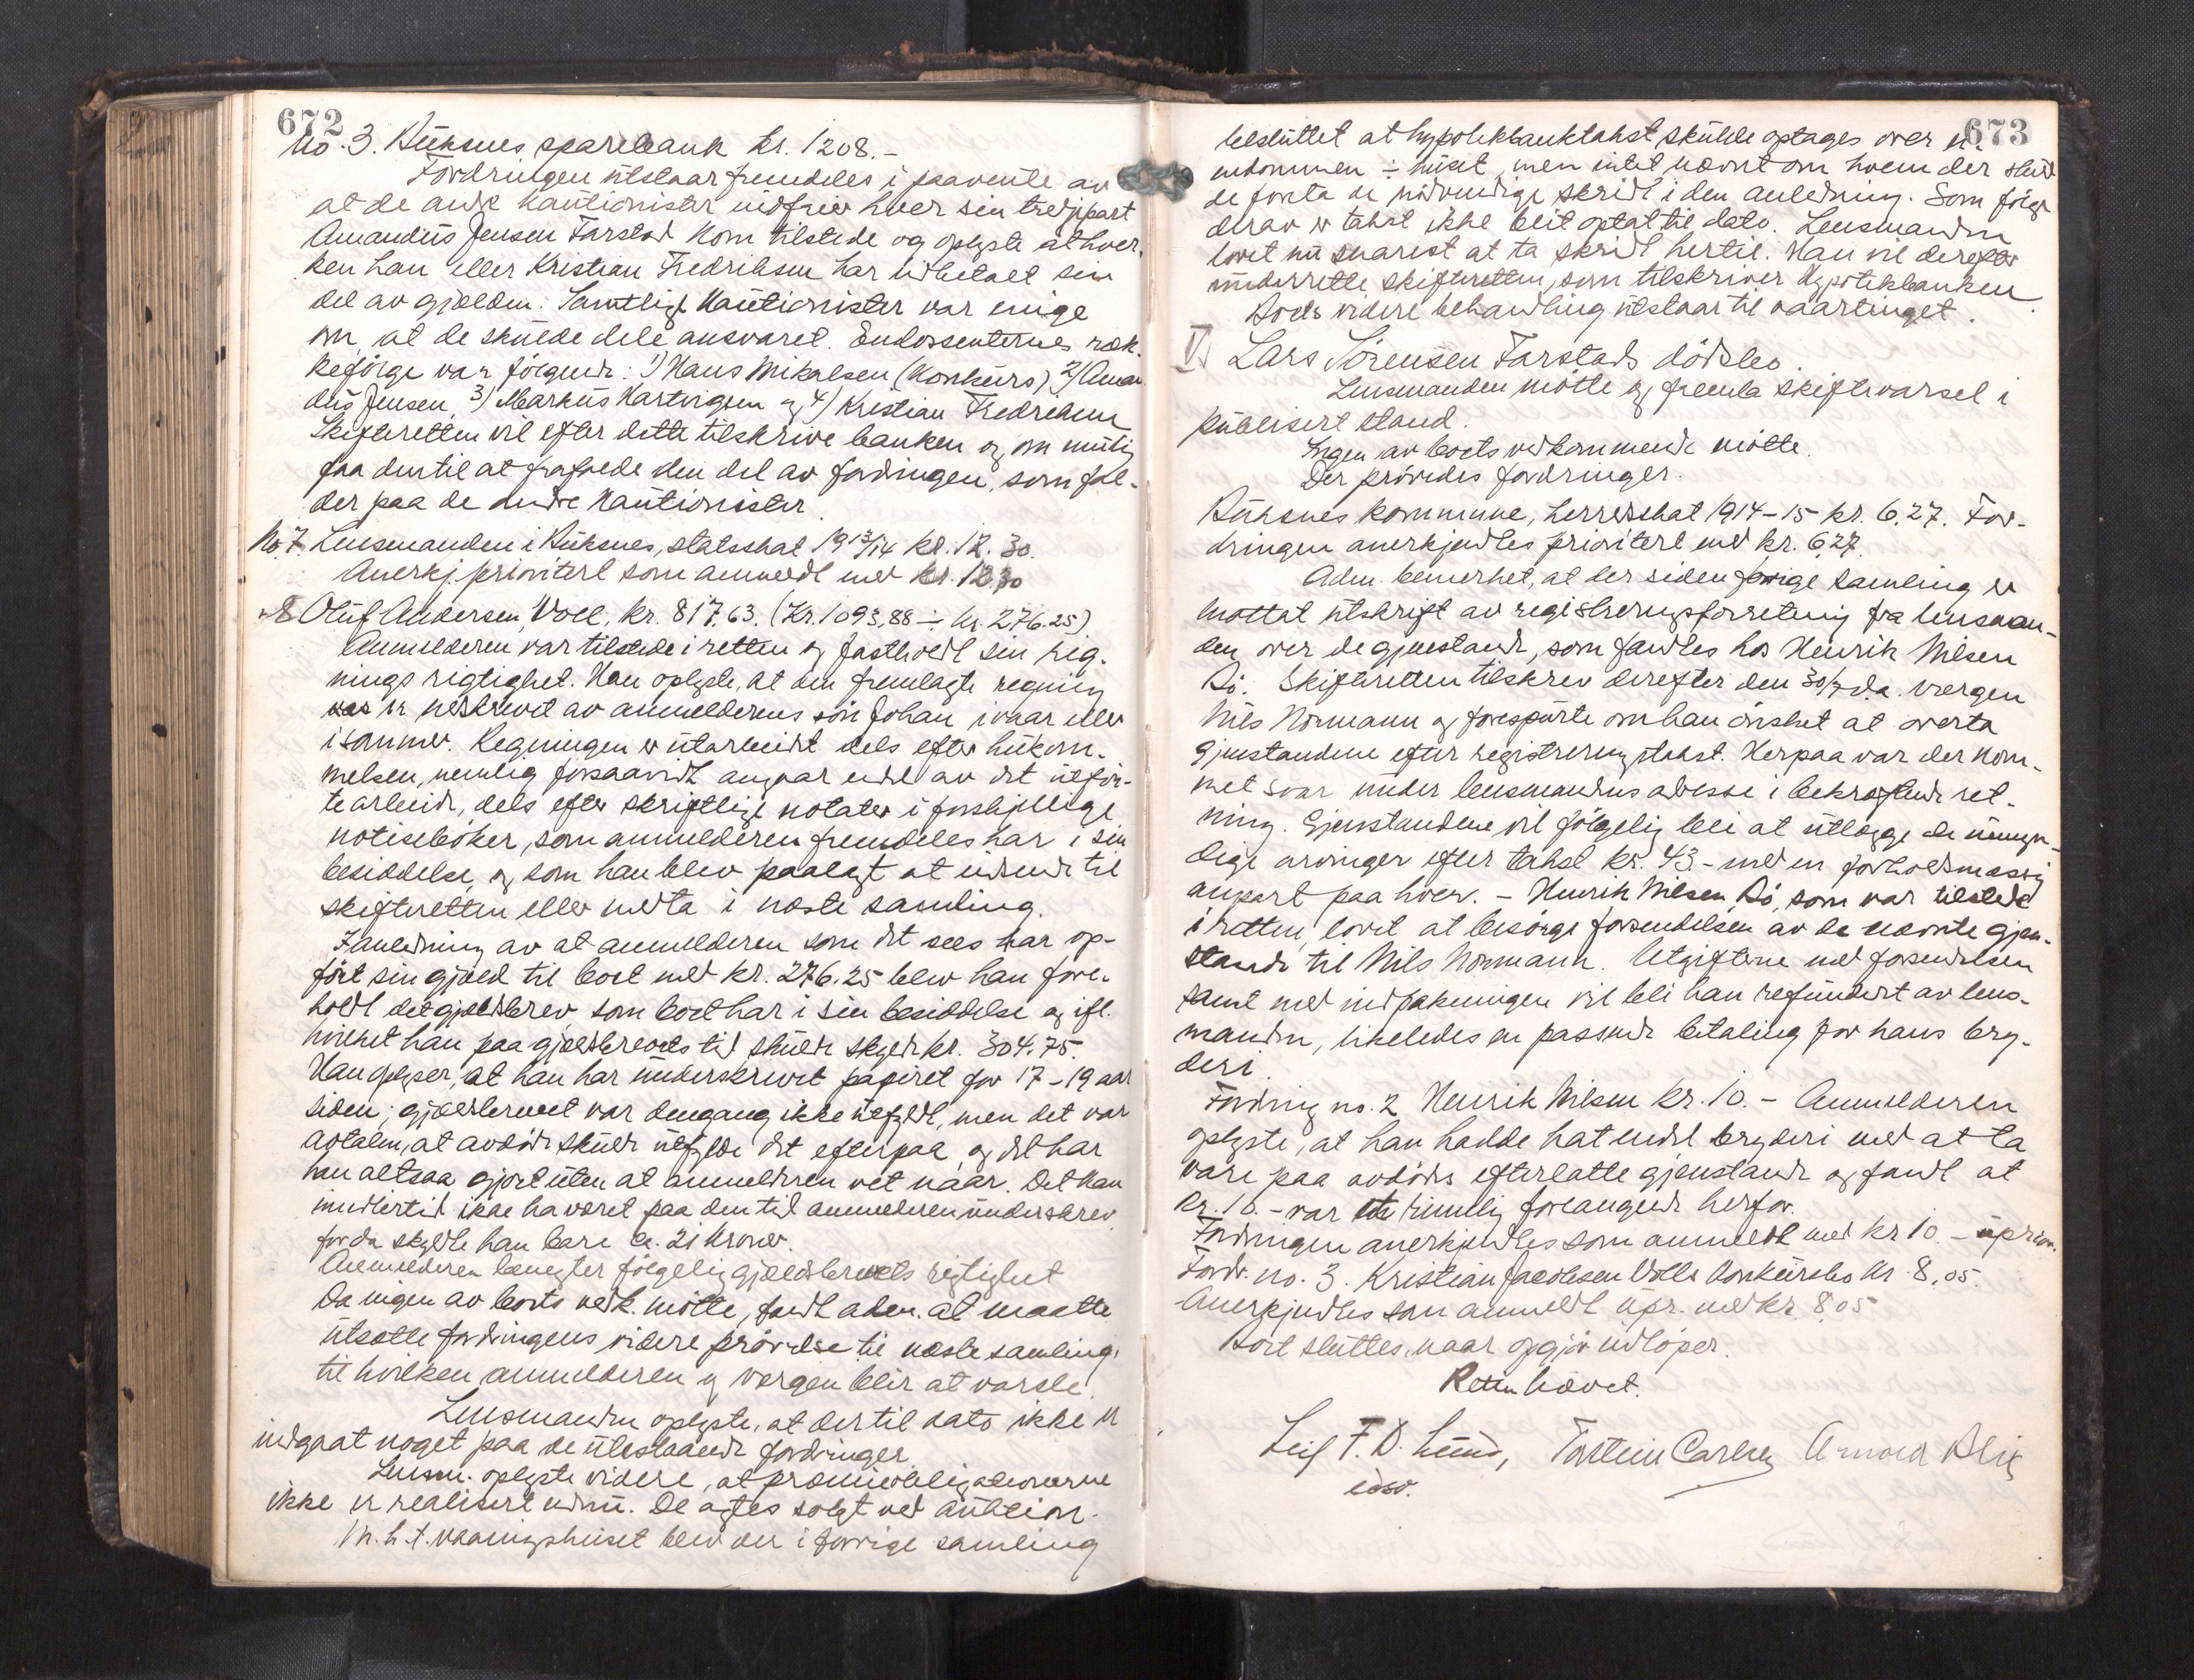 672
No. 3. Buksnes sparebank kr. 1208.-
Fordringen utstaar fremdeles i paavente av
at de andre kautionister indfrier hver sin tredjepart
Amandus Jensen Farstad kom tilstede og oplyste at hver-
ken han eller Kristian Fredriksen har indbetalt sin
del av gjælden. Samtlige kautionister var enige
om, at de skulde dele ansvaret. Endossenternes ræk-
kefölge var fölgende: 1) Hans Mikalsen (Konkurs) 2) Aman-
dus Jensen, 3) Markus Hartvigsen og 4) Kristian Fredriksen
Skifteretten vil efter dette tilskrive banken og om mulig
faa den til at frafalde den del av fordringen, som fal-
der paa de andre kautionister.
No 7. Lensmanden i Buksnes, statsskat 1913/14 kr. 12.30.
Anerkj. prioritert som anmeldt med kr. 12.30
" 8 Oluf Andersen, Voll, kr. 817.63. (Kr. 1093,88 ÷ kr. 276.25)
Anmelderen var tilstede i retten og fastholdt sin reg-
nings rigtighet. Han oplyste, at den fremlagte regning
var er nedskrevet av anmelderens sön Johan ivaar eller
isommer. Regningen er utarbeidet dels efter hukom-
melsen, nemlig forsaavidt angaar endel av det utför-
te arbeide, dels efter skriftlige notater i forskjellige
notiseböker, som anmelderen fremdeles har i sin
besiddelse, og som han blev paalagt at indsende til
skifteretten eller medta i næste samling.
I anledning av at anmelderen som det sees har op-
fört sin gjæld til boet med kr. 276.25 blev han fore-
holdt det gjældsbrev som boet har i sin besiddelse og ifl.
hvilket han paa gjældsbrevets tid skulde skylde kr. 304.75.
Han oplyser, at han har underskrevet papiret for 17-19 aar
siden; gjældsbrevet var dengang ikke utfyldt, men det var
avtalen, at avdöde skulde utfylde det efterpaa, og det har
han altsaa gjort uten at anmelderen vet naar. Det kan
imidlertid ikke ha været paa den tid anmelderen underskrev
for da skyldte han bare ca. 21 kroner.
Anmelderen benegter fölgelig gjældsbrevets rigtighet
Da ingen av boets vedk. mötte, fandt adm. at maatte
utsætte fordringens videre prövelse til næste samling,
til hvilken anmelderen og vergen blir at varsle.
Lensmanden oplyste, at der til dato ikke er
indgaat noget paa de utestaaende fordringer.
Lensm. oplyste videre, at præmieobligationerne
ikke er realisert endnu. De agtes solgt ved auktion.
M.h.t. vaaningshuset blev der i forrige samling
673
besluttet at hypotekbanktakst skulde optages over ei-
endommen ÷ huset, men intet nævnt om hvem der skul-
de foreta de nödvendige skridt i den anledning. Som fölge
derav er takst ikke blit optat til dato. Lensmanden
lovet nu snarest at ta skridt hertil. Han vil derefter
underrette skifteretten, som tilskriver Hypotekbanken.
Boets videre behandling utstaar til vaartinget.
V) Lars Sörensen Farstads dödsbo.
Lensmanden mötte og fremla skiftevarsel i
publisert stand.
Ingen av boets vedkommende mötte.
Der prövedes fordringer.
Buksnes kommune, herredsskat 1914-15 kr. 6.27. For-
dringen anerkjendtes prioritert med kr. 6.27.
Adm. bemerket, at der siden forrige samling er
mottat utskrift av registreringsforretning fra lensman-
den over de gjenstande, som fandtes hos Henrik Nilsen
Bö. Skifteretten tilskrev derefter den 30/7 d.a. vergen
Nils Normann og forespurte om han önsket at overta
gjenstandene efter registreringstakst. Herpaa var der kom-
met svar under lensmandens adresse i bekræftende ret-
ning. Gjenstandene vil fölgelig bli at utlægge de umyn-
dige arvinger efter takst kr. 43.- med en forholdsmæssig
anpart paa hver. - Henrik Nilsen, Bö, som var tilstede
i retten, lovet at besörge forsendelsen av de nævnte gjen-
stande til Nils Normann. Utgifterne med forsendelsen
samt med indpakningen vil bli han refundert av lens-
manden, likeledes en passende betaling for hans bry-
deri.
Fordring no. 2 Henrik Nilsen kr. 10.- Anmelderen
oplyste, at han hadde hat endel bryderi med at ta
vare paa avdödes efterlatte gjenstande og fandt at
kr. 10.- var rimelig forlangende herfor.
Fordringen anerkjendtes som anmeldt med kr 10.- uprior.
Fordr. no. 3. Kristian Jacobsen Volls konkursbo kr. 8.05.
Anerkjendtes som anmeldt upr. med kr. 8.05
Boet sluttes, naar opgjör indlöper.
Retten hævet.
Leif F. D. Lund, Torstein Carlsen Arnold Blix
edsv.